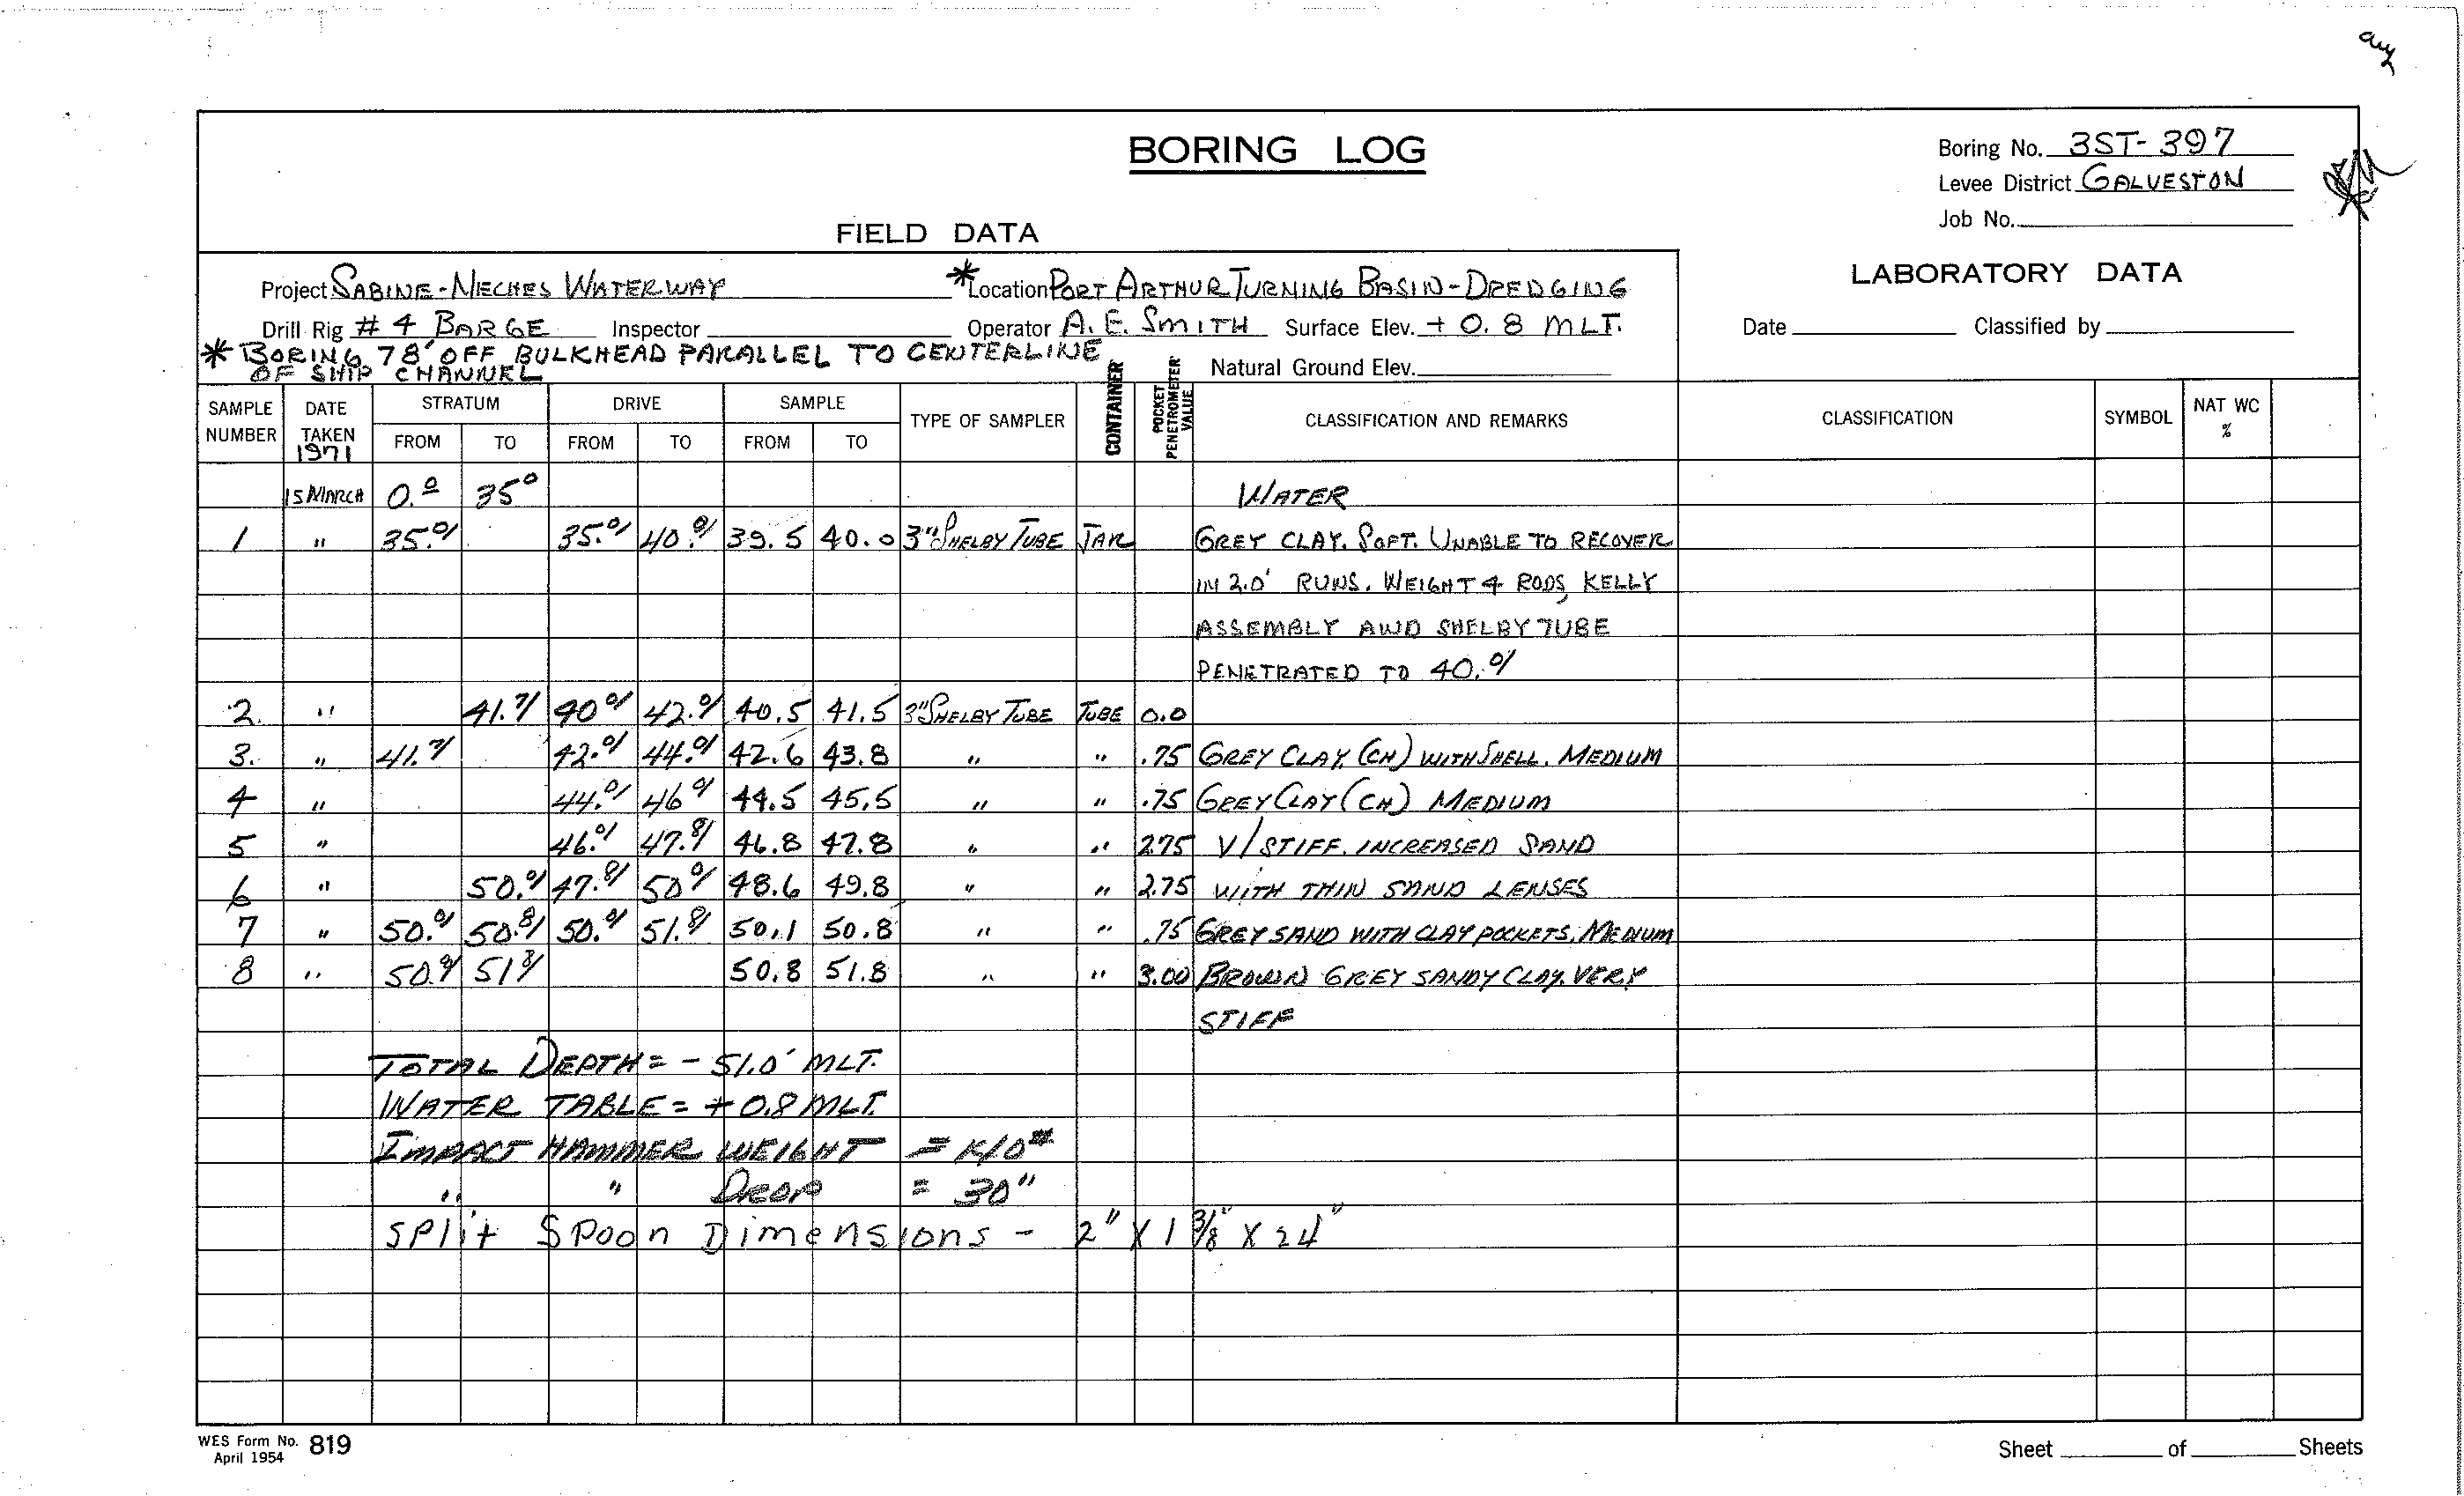 BORING LOG
Boring No. 3ST-397
Levee District GALVESTON
Job No.
FIELD DATA
LABORATORY DATA
Project SABINE-NECHES WATERWAY *Location PORT ARTHUR TURNING BASIN-DREDGING
Drill Rig # 4 BARGE Inspector Operator A. E. SMITH Surface Elev. + 0.8 MLT.
Date Classified by
* BORING 78' OFF BULKHEAD PARALLEL TO CENTERLINE
OF SHIP CHANNEL
Natural Ground Elev.
SAMPLE NUMBER DATE TAKEN 1971 STRATUM FROM TO DRIVE FROM TO SAMPLE FROM TO TYPE OF SAMPLER CONTAINER POCKET PENETROMETER VALUE CLASSIFICATION AND REMARKS CLASSIFICATION SYMBOL NAT WC %
15 MARCH 0.0 35 0 WATER
1 " 35.0' 35.0' 40.0' 39.5 40.0 3" SHELBY TUBE JAR GREY CLAY. SOFT. UNABLE TO RECOVER
IN 2.0' RUNS. WEIGHT 4 RODS, KELLY
ASSEMBLY AND SHELBY TUBE
PENETRATED TO 40.0'
2. " 41.7' 40 0' 42.0' 40.5 41.5 3" SHELBY TUBE TUBE 0.0
3. " 41.7' 42.0' 44.0' 42.6 43.8 " " .75 GREY CLAY (CH) WITH SHELL. MEDIUM
4 " 44.0' 46 0' 44.5 45.5 " " .75 GREY CLAY (CH) MEDIUM
5 " 46.0' 47.8' 46.8 47.8 " " 2.75 V/STIFF. INCREASED SAND
6 " 50.0' 47.8' 50 0' 48.6 49.8 " " 2.75 WITH THIN SAND LENSES
7 " 50.0' 50.8' 50.0' 51.8' 50.1 50.8 " " .75 GREY SAND WITH CLAY POCKETS. MEDIUM
8 " 50.8' 51 8' 50.8 51.8 " " 3.00 BROWN GREY SANDY CLAY. VERY
STIFF
TOTAL DEPTH = - 51.0' MLT.
WATER TABLE = + 0.8 MLT.
IMPACT HAMMER WEIGHT =
" " DROP = 30"
Split Spoon Dimensions - 2" X 1 3/8" X 24"
WES Form No. 819
April 1954
Sheet of Sheets